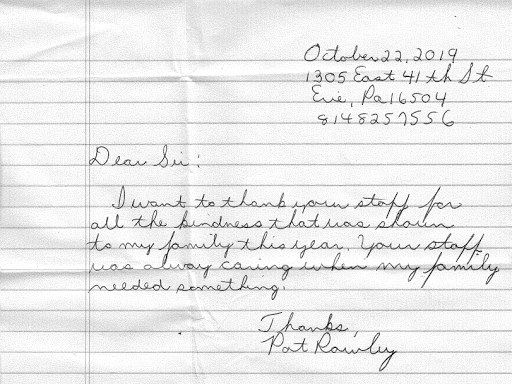 October 22, 2019
1305 East 41 th St
Erie, Pa 16504
8148257556
Dear Sir:
I want to thank your staff for
all the kindness that was shown
to my family this year. Your staff
was alway caring when my family
needed something.
Thanks,
Pat Rowley